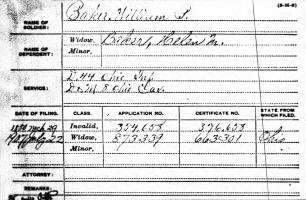 (3-1111-B)
NAME OF SOLDIER: Baker, William S.
NAME OF DEPENDENT: Widow, Baker, Helen M.
Minor,
SERVICE: D. 44 Ohio Inf
D. M 8 Ohio Cav.
DATE OF FILING. CLASS. APPLICATION NO. CERTIFICATE NO. STATE FROM WHICH FILED.
Invalid, 354.658 376.658
Widow, 873.339 663.301 Ohio
Minor,
ATTORNEY:
REMARKS: